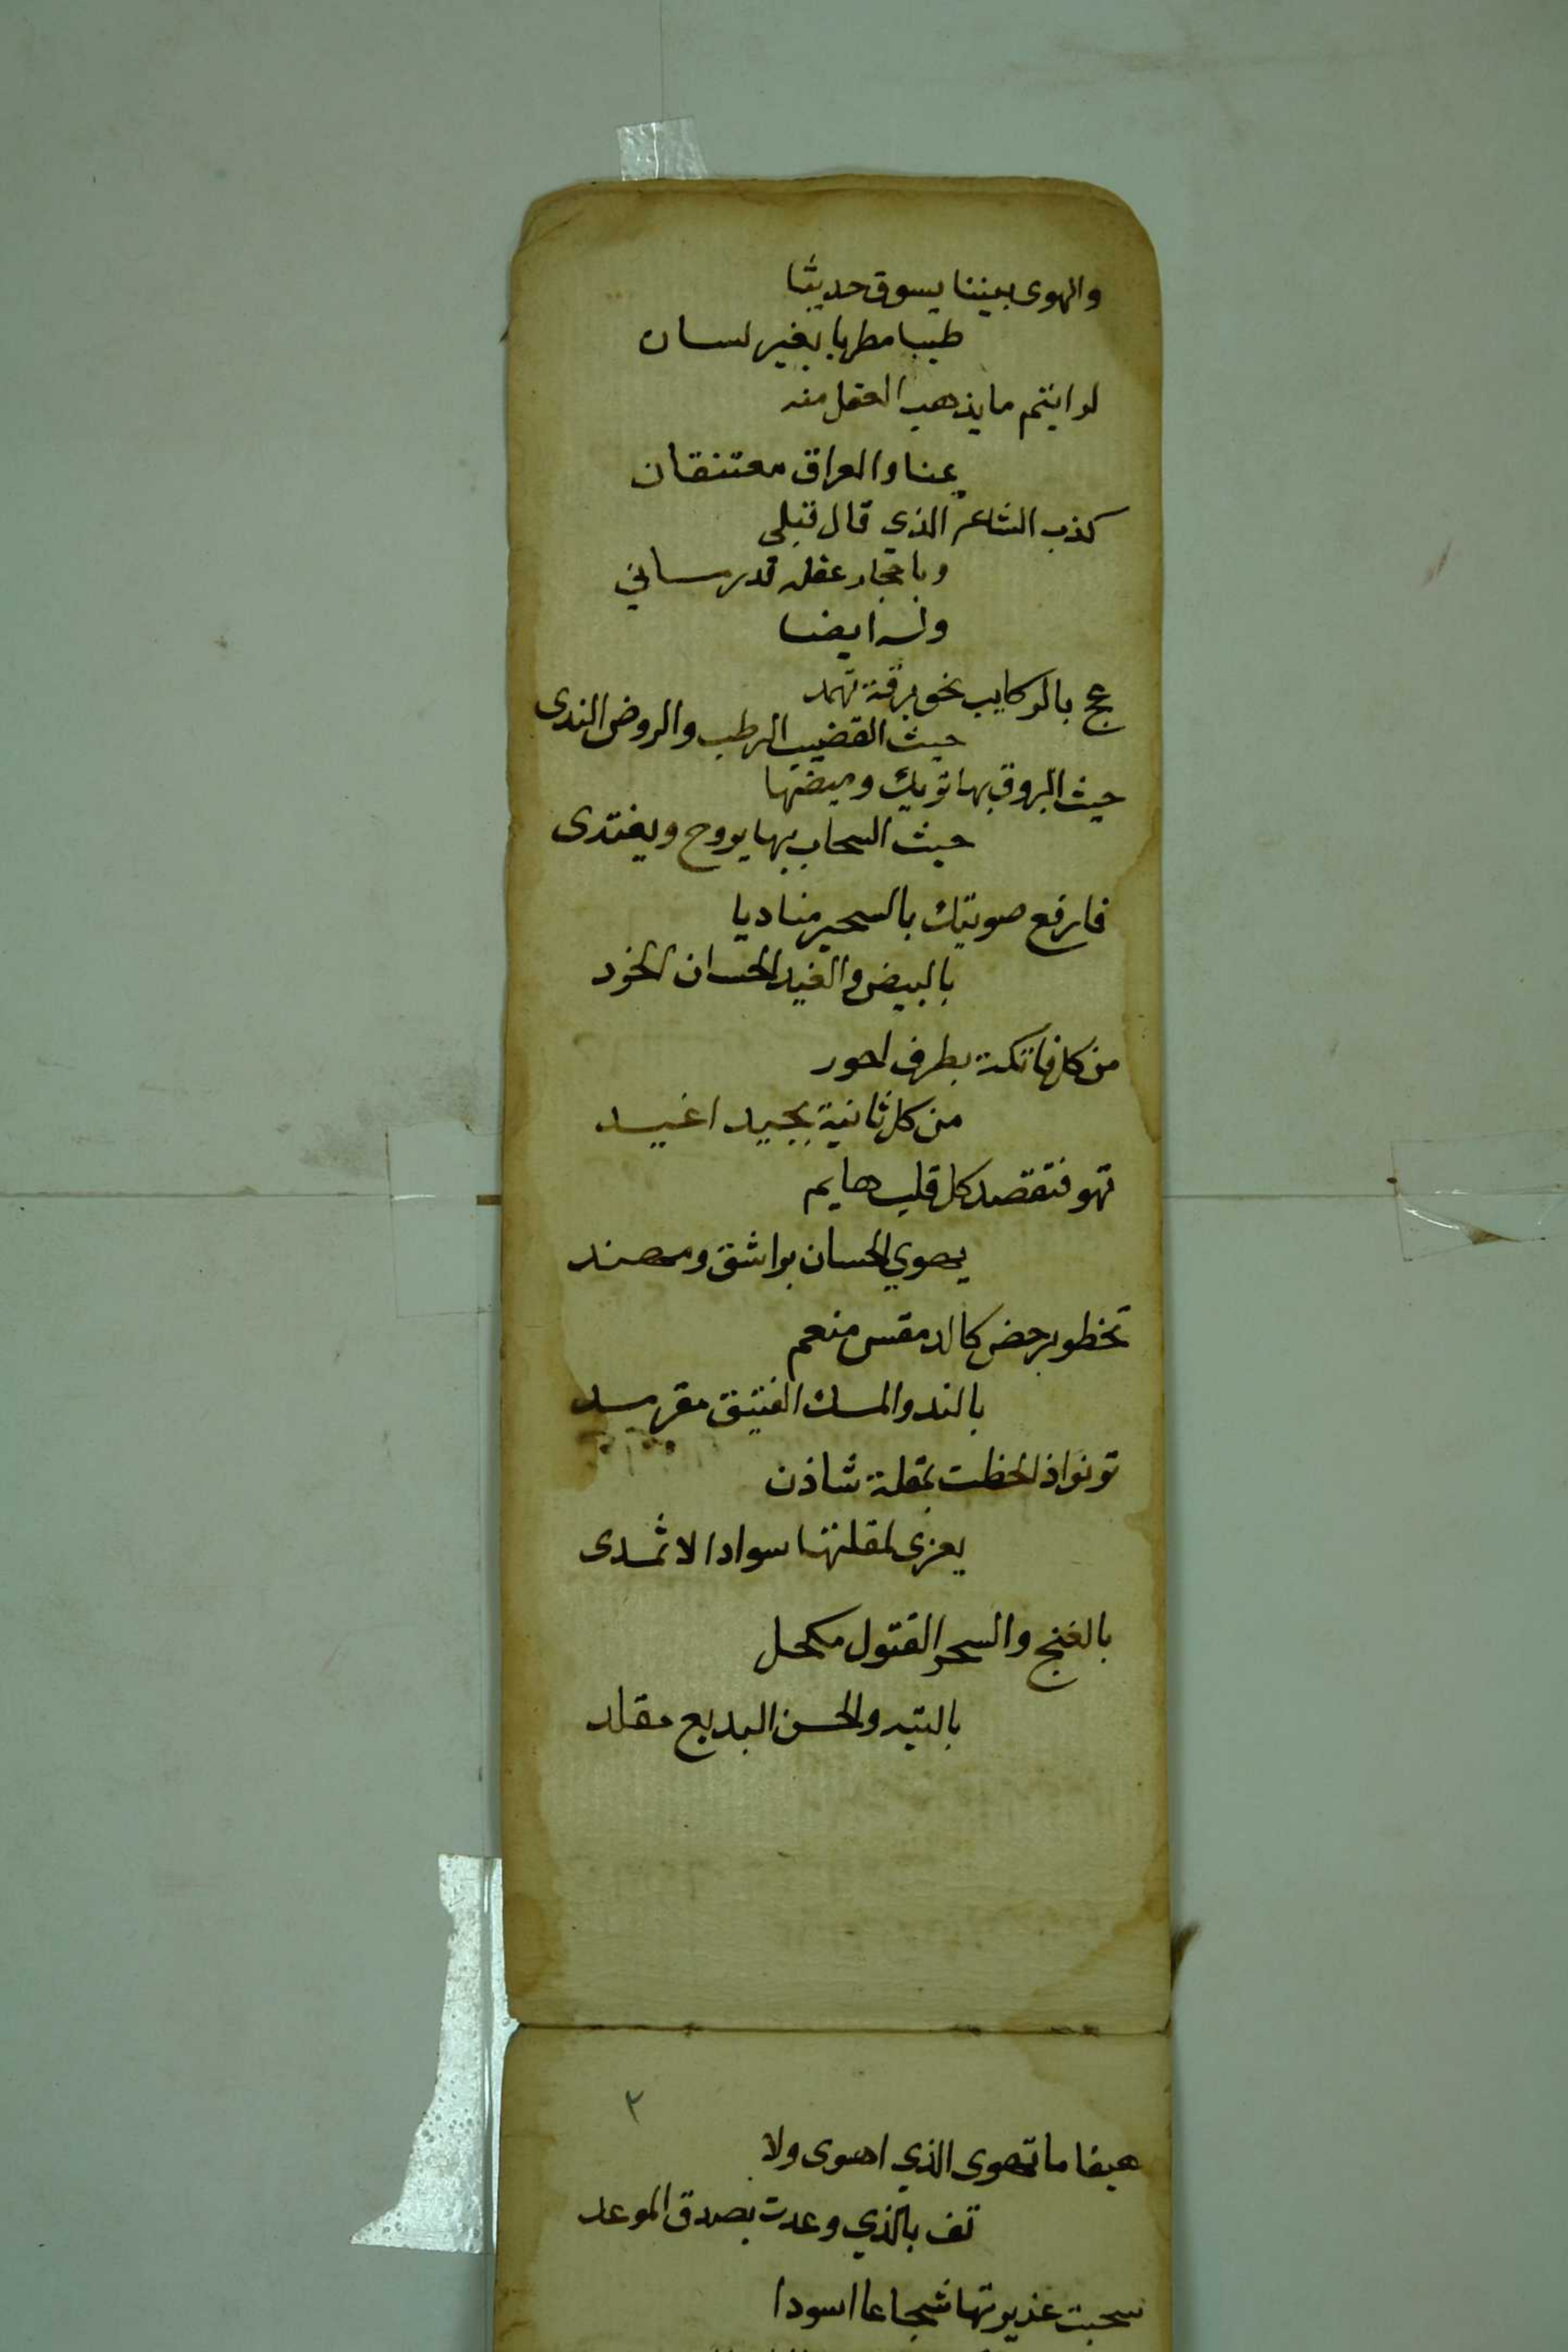 والهوى بيننا يسوق حديثا
طيبا مطربا بغير لسان
لو ايتم ما يذهب العقل منه
يمنا والعراق معتنقان
كذب الشاعر الذي قال قبلي
وباحجار عقله قد رساني
وله ايضا
عج بالركايب نحو برقة تهمد
حيث القضيب الرطب والروض الندى
حيث البروق بها تويك وميضها
حيث السحاب بها يروح ويغتدى
فارفع صويتك بالسحير مناديا
بالبيض والغيد الحسان الخرد
من كل فاتكة بطرف احور
من كل ثانية بجيد اغيد
تهو فتقصد كل قلب هايم
يهوي الحسان براشق ومهند
تخطو برحض كالدمقس منعم
بالند والمسك الفتيق مقرمد
تونو اذا لحظت بمقلة شاذن
يعزى لمقلتها سواد الاثمدى
بالغنج والسحر القتول مكحل
بالتيه والحسن البديع مقلد
٣
هيفا ما تهوى الذي اهوى ولا
تف بالذي وعدت بصدق الموعد
سحبت غديرتها شجاعا اسودا